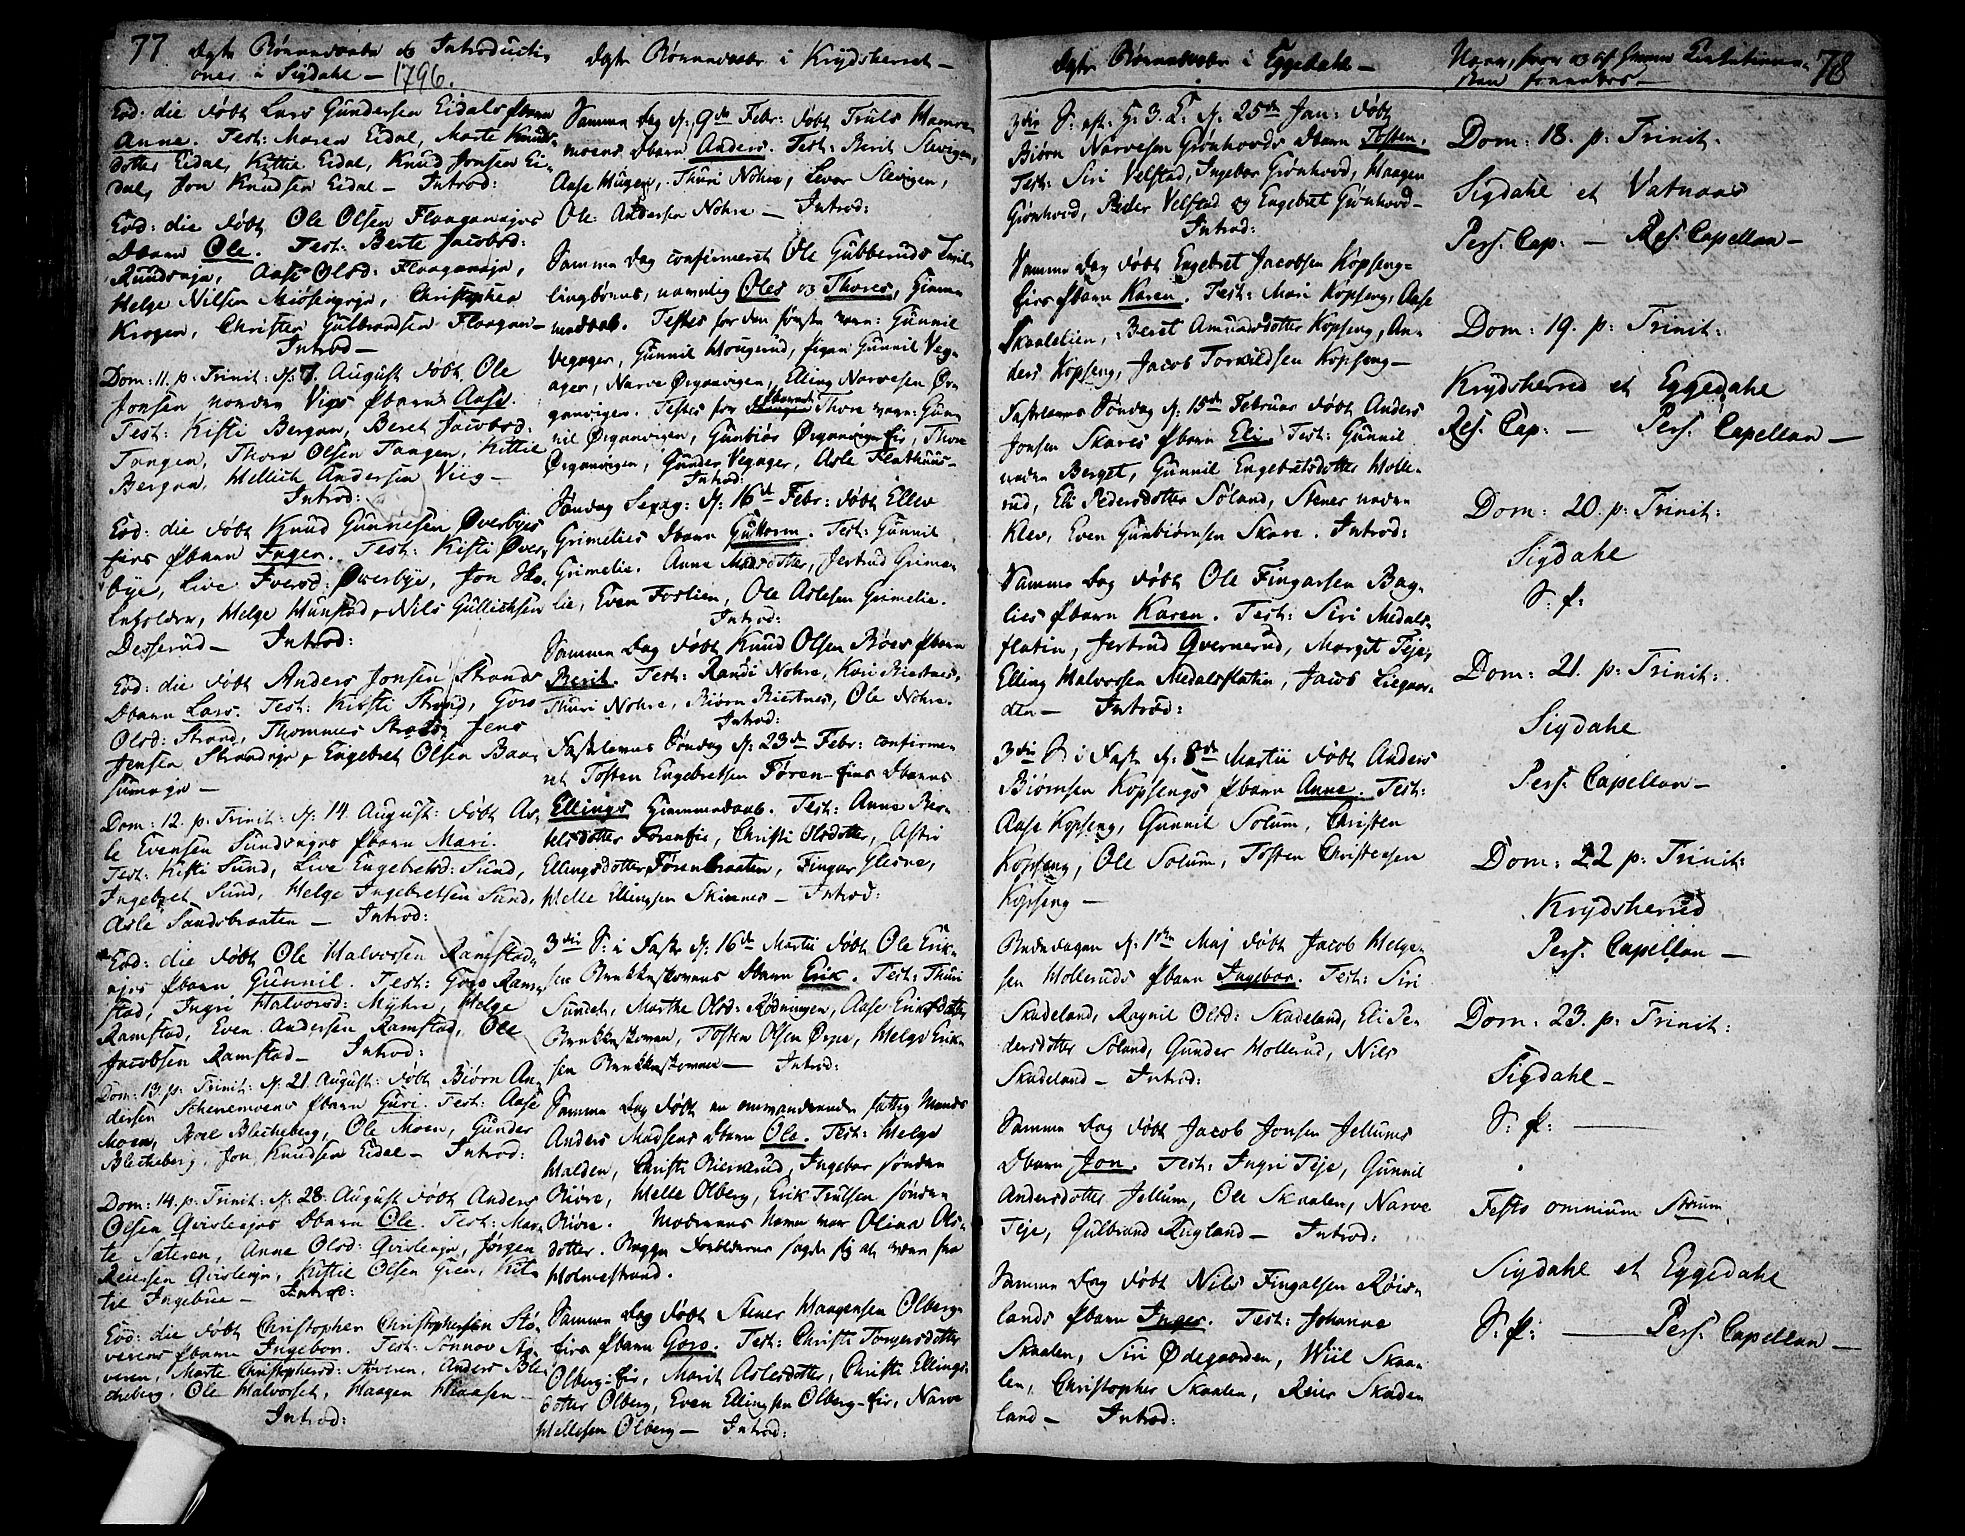 77
Dgte Børnedaabe og Introducti-
oner i Sigdahl — 1796.
Eod: die døbt Lars Gundersen Eidals Pbarn
Anne. Test: Maren Eidal, Marte Knuds-
dotter Eidal, Kittil Eidal, Knud Jonsen Ei-
dal, Jon Knudsen Eidal — Introd:
Eod: die døbt Ole Olsen Flaaganejes
Dbarn Ole. Test: Berte Jacobsd:
Rudseje, Aase Olsd: Flaaganeje,
Helge Nilsen Christopher
Krogen, Christen Gulbrandsen Flaagan—
Introd —
Dom: 11. p: Trinit: d: 7. August døbt Ole
Jonsen nordre Vigs Pbarn Aase.
Test: Kisti Bergan, Beret Jacobsd:
Tangen, Thore Olsen Tangen, Kittil
Bergan, Hellich Andersen Viig —
Introd:
Eod: die døbt Knud Gunnesen Øverbyes
firs Pbarn Ingen. Test: Kisti Øver-
bye, Live Iversd: Øverbye, Jon Sko-
leholder, Helge Hunstad, Nils Gullichsen
Desserud — Introd:
Eod: die døbt Anders Jonsen Strands
Dbarn Lars. Test: Kirsti Strand, Goro
Olsd: Strand, Thommes Strand, Jens
Jensen Strandeje, Engebret Olsen Baa-
sumeje —
Dom: 12. p: Trinit: d: 14. August: døbt As-
le Evensen Sundsejes Pbarn Mari.
Test: Kisti Sund, Live Engebretsd: Sund,
Ingebret Sund, Helge Ingebretsen Sund,
Asle Sandsbraaten — Introd:
Eod: die døbt Ole Halvorsen Ramstad-
ejes Pbarn Gunnil. Test: Goro Ram-
stad, Ingri Halvorsd: Myhre, Helge
Ramstad, Even Andersen Ramstad, Ole
Jacobsen Ramstad — Introd:
Dom: 13. p: Trinit: d: 21. August: døbt Biørn An-
dersen Schenemoens Pbarn Guri. Test: Aase
Moen, Blecheberg, Ole Moen, Gunder
Blecheberg, Jon Knudsen Eidal — Introd:
Dom: 14. p: Trinit: d: 28. August døbt Anders
Olsen Qvislesejes Dbarn Ole. Test: Mar-
te Sæteren, Anne Olsd: Qvisleseje, Jørgen
Reiersen Qvisleseje, Kittil Olsen Gren, Kit-
til Ingebue — Introd:
Eod: die døbt Christopher Christophersen Stø-
verens Pbarn Ingebor. Test: Sønnov Stø-
veren, Marte Christophersd: Støveren, Anders Ble-
cheberg, Ole Halvorsen, Haagen Klaasen —
Introd:
Dgte Børnedaabe i Krydsherret —
Samme Dag d: 9de Febr: døbt Truls Hamre-
moens Dbarn Anders. Test: Berit Slevigen,
Aase Haugen, Thuri Nohre, Levor Slevigen,
Ole Andersen Nohre — Introd:
Samme Dag confirmeret Ole Gubberuds Tvil-
lingbørns, nemlig Oles og Thores, Hiemme-
daab. Testes for den første vare: Gunnil
Vegager, Gunnil Hougerud, pigen Gunnil Veg-
ager, Narve Ørgenvigen, Elling Narvesen Ør-
genvigen. Testes for Thore vare: Gun-
nil Ørgenvigen, Gunbiør Ørgenvigen fir, Thore
Ørgenvigen, Gunder Vegager, Asle Flathuus—
Introd:
Søndag Sexag: d: 16de Febr: døbt Ellev
Grimelies Dbarn Guttorm. Test: Gunnil
Grimelie, Anne Jertrud Grime-
lie, Even Foslien, Ole Aslesen Grimelie.
Introd:
Samme Dag døbt Knud Olsen Røes Pbarn
Berit. Test: Randi Nohre, Kari Biertnes,
Thuri Nohre, Biørn Biertnes, Ole Nohre.
Introd:
Fastelavns Søndag d: 23de Febr: confirme-
ret Tosten Engebretsen Føren-firs Dbarns
Ellings Hiemmedaab. Test: Anne Ber-
telsdotter Forenfir, Christi Olsdotter, Astri
Ellingsdotter Førenbraaten, Fingar Glesne,
Helle Ellingsen Skinnes — Introd:
3die S: i Faste d: 16de Martii døbt Ole Erik-
sen Dbarn Erik. Test: Thuri
Sundet, Marthe Olsd: Rødningen, Aase Eriksdotter
Tosten Olsen Ørpe, Helge Erik-
sen — Introd:
Samme Dag døbt en omvandrende fattig Mands
Anders Madsens Dbarn Ole. Test: Helge
Halden, Christi Biernerud, Ingebor søndre
Biøre, Helle Olberg, Erik Trulsen søndre
Biøre. Moderens Navn var Olina Ols-
dotter. Begge Forældrene sagde sig at være fra
Holmestrand.
Samme Dag døbt Stener Haagensen Olberg-
firs Pbarn Goro. Test: Christi Torgersdotter
Olberg-fir, Marit Aslesdotter, Christi Ellings-
dotter Olberg, Even Ellingsen Olberg-fir, Narve
Hellesen Olberg — Introd:
Dgte Børnedaabe i Eggedahl —
3die S: est: H: 3. K: d: 25de Jan: døbt
Biørn Narvesen Grønhovds Dbarn Tosten.
Test: Siri Velstad, Ingebor Grønhovd, Haagen
Grønhovd, Peder Velstad og Engebret Grønhovd—
Introd:
Samme Dag døbt Engebret Jacobsen Kopseng-
firs Pbarn Karen. Test: Mari Kopseng, Aase
Skaaletien, Beret Amundsdotter Kopseng, An-
ders Kopseng, Jacob Torkildsen Kopseng —
Fastelavns Søndag d: 15de Februar døbt Anders
Jonsen Skares Pbarn Eli. Test: Gunnil
neden Berget, Gunnil Engebretsdotter Holle-
rud, Eli Pedersdotter Soland, Stener neden
Klev, Even Gunbiørnsen Skare. Introd:
Samme Dag døbt Ole Fingarsen Bag-
lies Pbarn Karen. Test: Siri Medals-
flatin, Jertrud Qvernerud, Margit Teje,
Elling Halvorsen Medalsflatin, Jacob Liegaar-
den — Introd:
3die S: i Fast d: 8de Martii døbt Anders
Biørnsen Kopsengs Pbarn Anne. Test:
Aase Kopseng, Gunnil Solum, Christen
Kopseng, Ole Solum, Tosten Christensen
Kopseng —
Bededagen d: 1ste Maj døbt Jacob Helge-
sen Holleruds Pbarn Ingebor. Test: Siri
Skadeland, Ragnil Olsd: Skadeland, Eli Pe-
dersdotter Soland, Gunder Hollerud, Nils
Skadeland — Introd:
Samme Dag døbt Jacob Jonsen Jellums
Dbarn Jon. Test: Ingri Teje, Gunnil
Andersdotter Jellum, Ole Skaalen, Narve
Teje, Gulbrand Rugland — Introd:
Samme Dag døbt Nils Fingalsen Røis-
lands Pbarn Inger. Test: Johanne
Skaalen, Siri Ødegaarden, Wiil Skaa-
len, Christopher Skaalen, Reier Skade-
land — Introd:
78
Naar, hvor og af hvem
Dom: 18. p: Trinit:
Sigdahl et Vatnaas
Pers. Cap: — Res. Capellan —
Dom: 19. p: Trinit:
Krydsherred et Eggedahl
Res. Cap: — Pers. Capellan —
Dom: 20. p: Trinit:
Sigdahl
S: P:
Dom: 21. p: Trinit:
Sigdahl
Pers. Capellan —
Dom: 22 p: Trinit:
Krydsherred
Pers. Capellan —
Dom: 23. p: Trinit:
Sigdahl —
S: P: —
Festo omnium Storum
Sigdahl et Eggedahl
S: P: — Pers. Capellan —